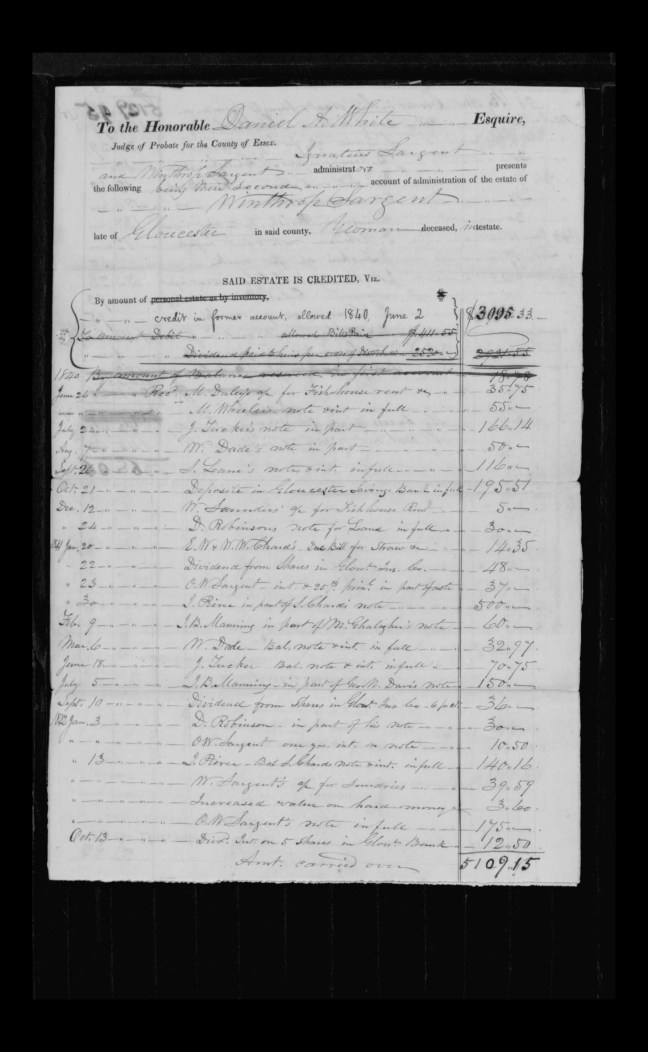 To the Honorable Daniel A. White Esquire,
Judge of Probate for the County of Essex.
Ignatius Sargent
and Winthrop Sargent administrators presents
the following being their second account of administration of the estate of
Winthrop Sargent
late of Gloucester in said county, Yeoman deceased, intestate.
SAID ESTATE IS CREDITED, Viz.
By amount of personal estate as by inventory,
" " credit in former account, allowed 1840, June 2 $3095.33
To amount Debit allowed Bills Paid $411.55
Dividend paid to heirs 2520.— 2931.55
1840 By amount of Balance reserved in first account 18.78
June 26 " " Recd. M. Duley's a/c for Fish house rent &c 35.75
" " M. Wheeler's note & int in full 55.—
July 2 J. Tucker's note in part 166.14
Aug. 7 W. Dade's note in part 50.—
Sept. 26 S. Lane's note & int. in full 116.—
Oct. 21 Deposite in Gloucester Savings Bank in full 195.51
Dec. 12 W. Saunders' a/c for Fish house Rent 5.—
" 24 D. Robinsons note for Land in full 30.—
1841 Jan. 20 E.W. & W.W. Chard's Due Bill for Straw &c 14.35
" 22 Dividend from Shares in Glout. Ins. Co. 48.—
" 23 O.W. Sargent int. & 25$ prinl. in part of note 37.—
" 30 J. Pierce in part of S. Chards note 500.—
Feb. 9 J.B. Manning in part of note 60.—
Mar. 6 W. Dade Bal. note & int in full 32.97
June 18 J. Tucker Bal. note & int. in full 70.75
July 5 J.B. Manning in part of Geo. W. Davis note 150.—
Sept. 10 Dividend from Shares in Glout Ins Co. 36.—
1842 Jan. 3 D. Robinson in part of his note 30.—
" " O.W. Sargent one yrs. int. on note 10.50
" 13 J. Pierce Bal S. Chards note & int. in full 140.16
" W. Sargent's a/c for Sundries 39.59
" Increased value on hard money 3.60
" O.W. Sargent's note in full 175.—
Oct. 13 Divd. Int. on 5 Shares in Glout. Bank 12.50
Amt. carried over 5109.15